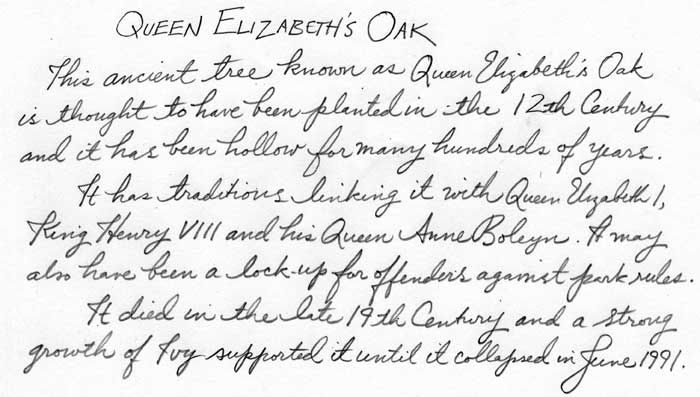 QUEEN ELIZABETH'S OAK
This ancient tree known as Queen Elizabeth's Oak
is thought to have been planted in the 12th Century
and it has been hollow for many hundreds of years.
It has traditions linking it with Queen Elizabeth I,
King Henry VIII and his Queen Anne Boleyn. It may
also have been a lock-up for offenders against park rules.
It died in the late 19th Century and a strong
growth of Ivy supported it until it collapsed in June 1991.